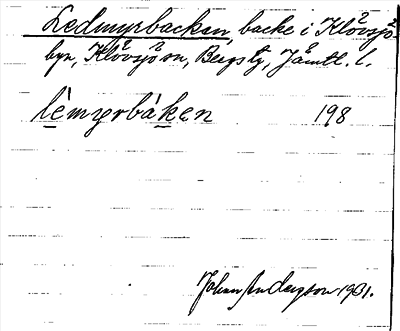 Ledmyrbacken, backe i Klövsjö
byn, Klövsjö sn, Bergs tg, Jämtl. l.
lèmyrbáken 198
Johan Anderson 1931.